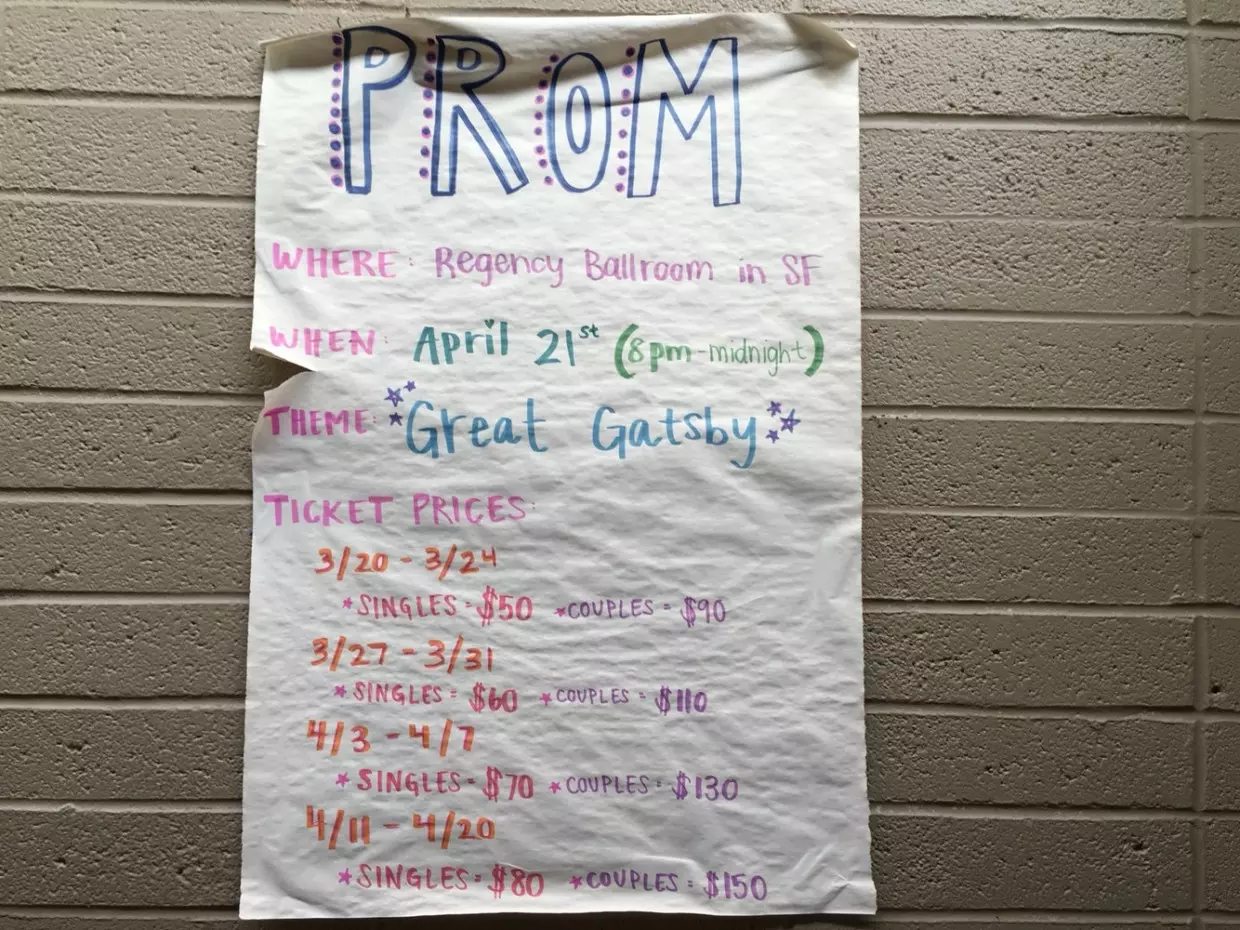 PROM
WHERE: Regency Ballroom in SF
WHEN: April 21st (8pm-midnight)
THEME: Great Gatsby
TICKET PRICES:
3/20 - 3/24
*SINGLES = $50 *COUPLES = $90
3/27 - 3/31
*SINGLES = $60 *COUPLES = $110
4/3 - 4/7
*SINGLES = $70 *COUPLES = $130
4/11 - 4/20
*SINGLES = $80 *COUPLES = $150